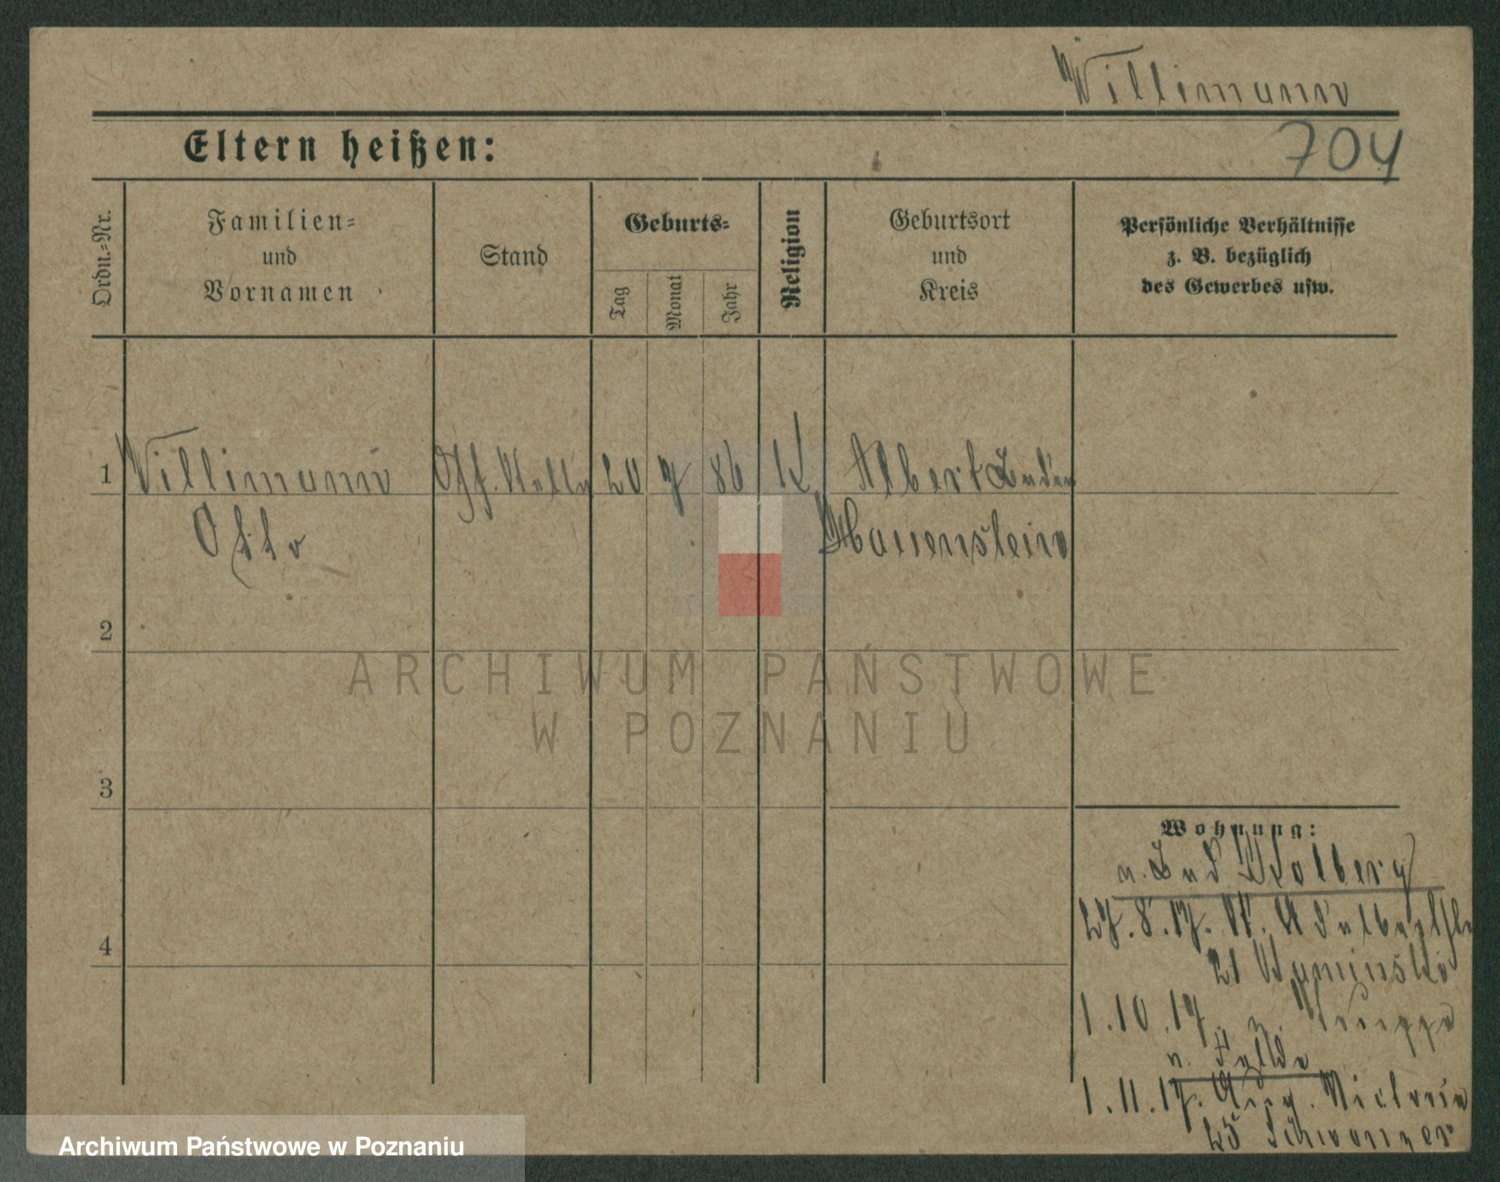 Willimann
704
Eltern heißen:
Ordn.-Nr.
Familien-
und
Vornamen
Stand
Geburts-
Tag
Monat
Jahr
Religion
Geburtsort
und
Kreis
Persönliche Verhältnisse
z. B. bezüglich
des Gewerbes usw.
1
Willimann
Otto
20 7 86
Albert
2
ARCHIWUM PAŃSTWOWE
W POZNANIU
3
4
Wohnung:
n. Kolberg
27. 8. 17.
21
1. 10. 17. z. Truppe
n.
1. 11. 17. Aug. Victoria
25 Schwanzer
Archiwum Państwowe w Poznaniu